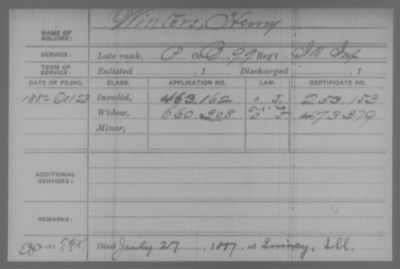 NAME OF SOLDIER: Winters, Henry
SERVICE: Late rank, P Co. 99 Reg't Ill Inf
TERM OF SERVICE: Enlisted , 1 Discharged , 1
DATE OF FILING. CLASS. APPLICATION NO. LAW. CERTIFICATE NO.
1882 Oct 23 Invalid, 463.162 253.153
Widow, 660.303 473379
Minor,
ADDITIONAL SERVICES:
REMARKS:
Died July 27, 1897, at Quincy, Ill.